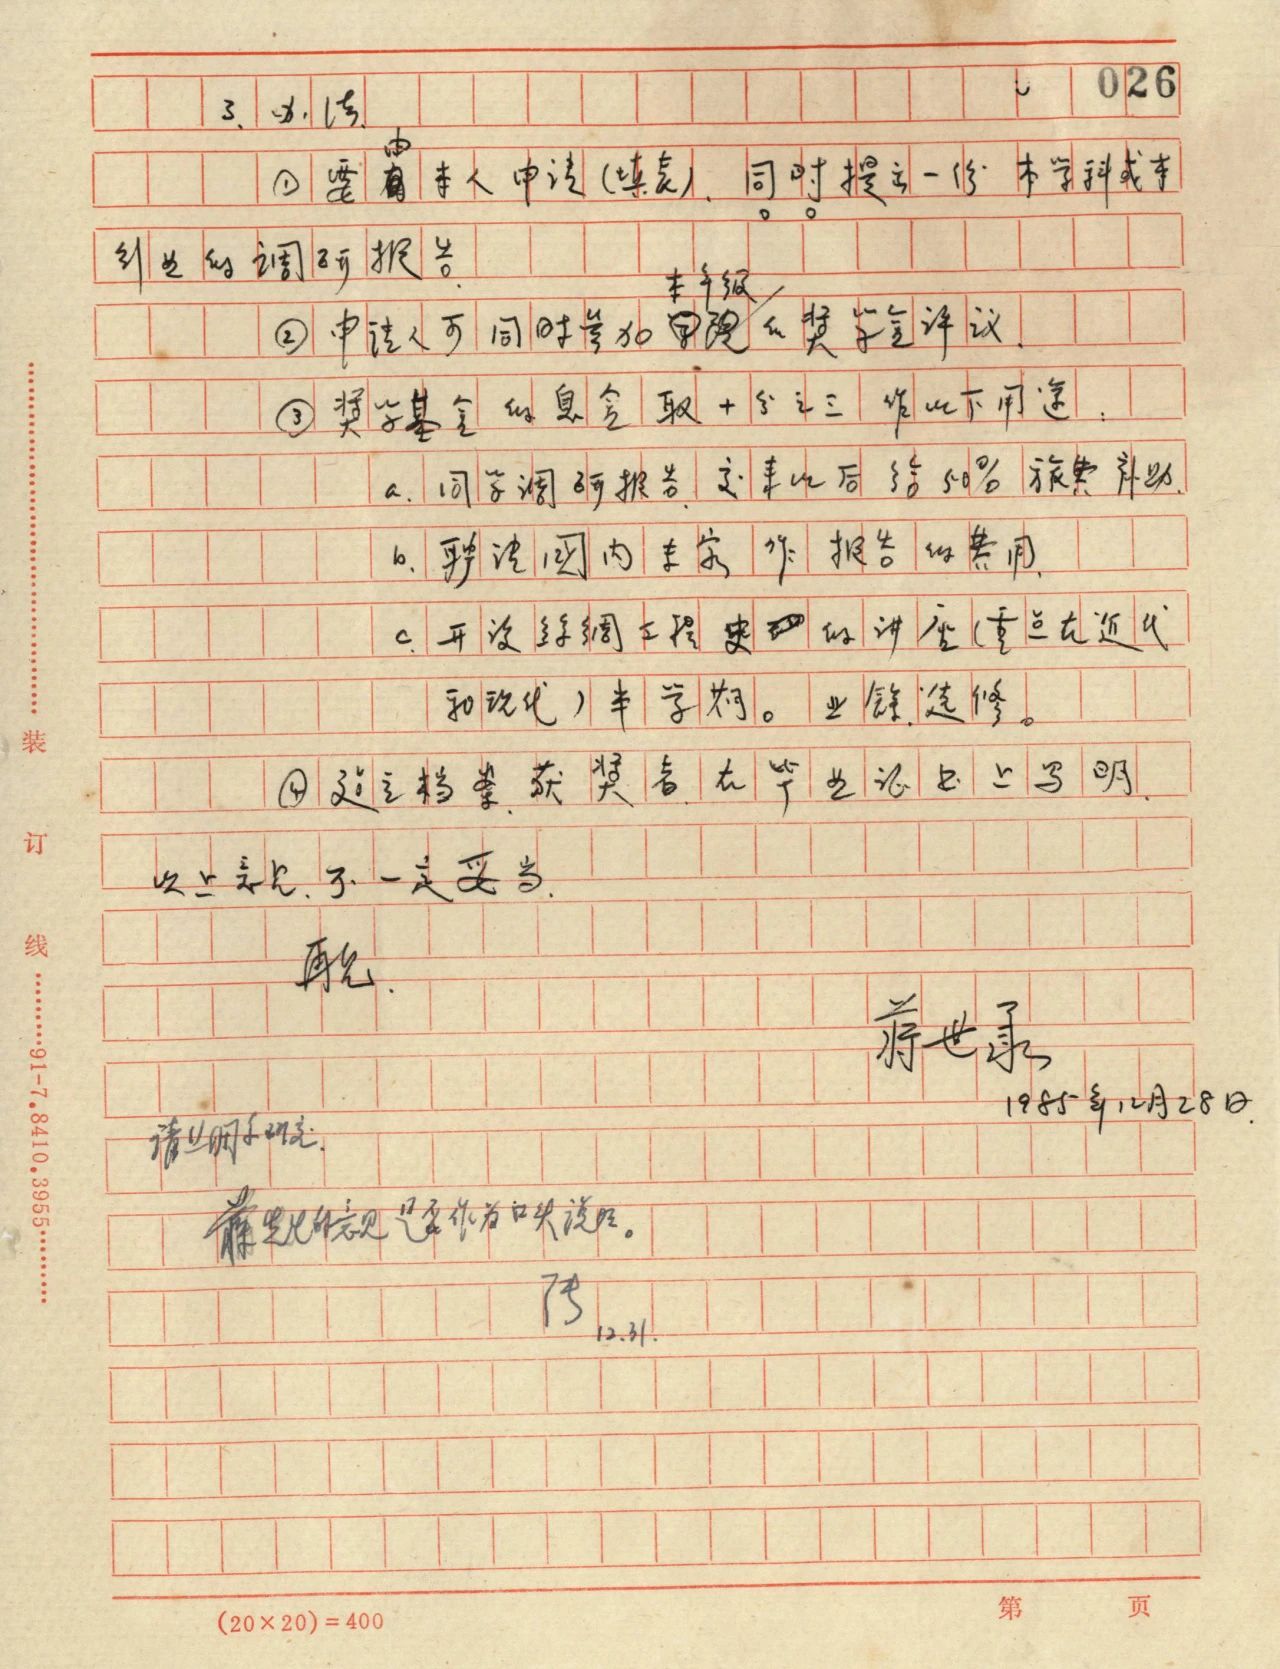 026
3. 办法.
由
① 要 本人申请(填表). 同时提出一份本学科或本
专业的调研报告.
本年级
② 申请人可同时参加 的奖学金评议.
③ 奖学基金的息金取十分之三作以下用途:
a. 同学调研报告交来以后给50%旅费补助.
b. 聘请国内专家作报告的费用.
c. 开设丝绸工程史 的讲座(重点在近代
和现代)半学期。业余选修。
④ 建立档案.获奖者在毕业证书上写明.
以上意见.不一定妥当.
再见.
蒋世承
1985年12月28日.
请丝绸系研究.
先生的意见是否作为 说明。
陆
12.31.
装
订
线
91-7.8410.3955
(20×20)=400
第 页